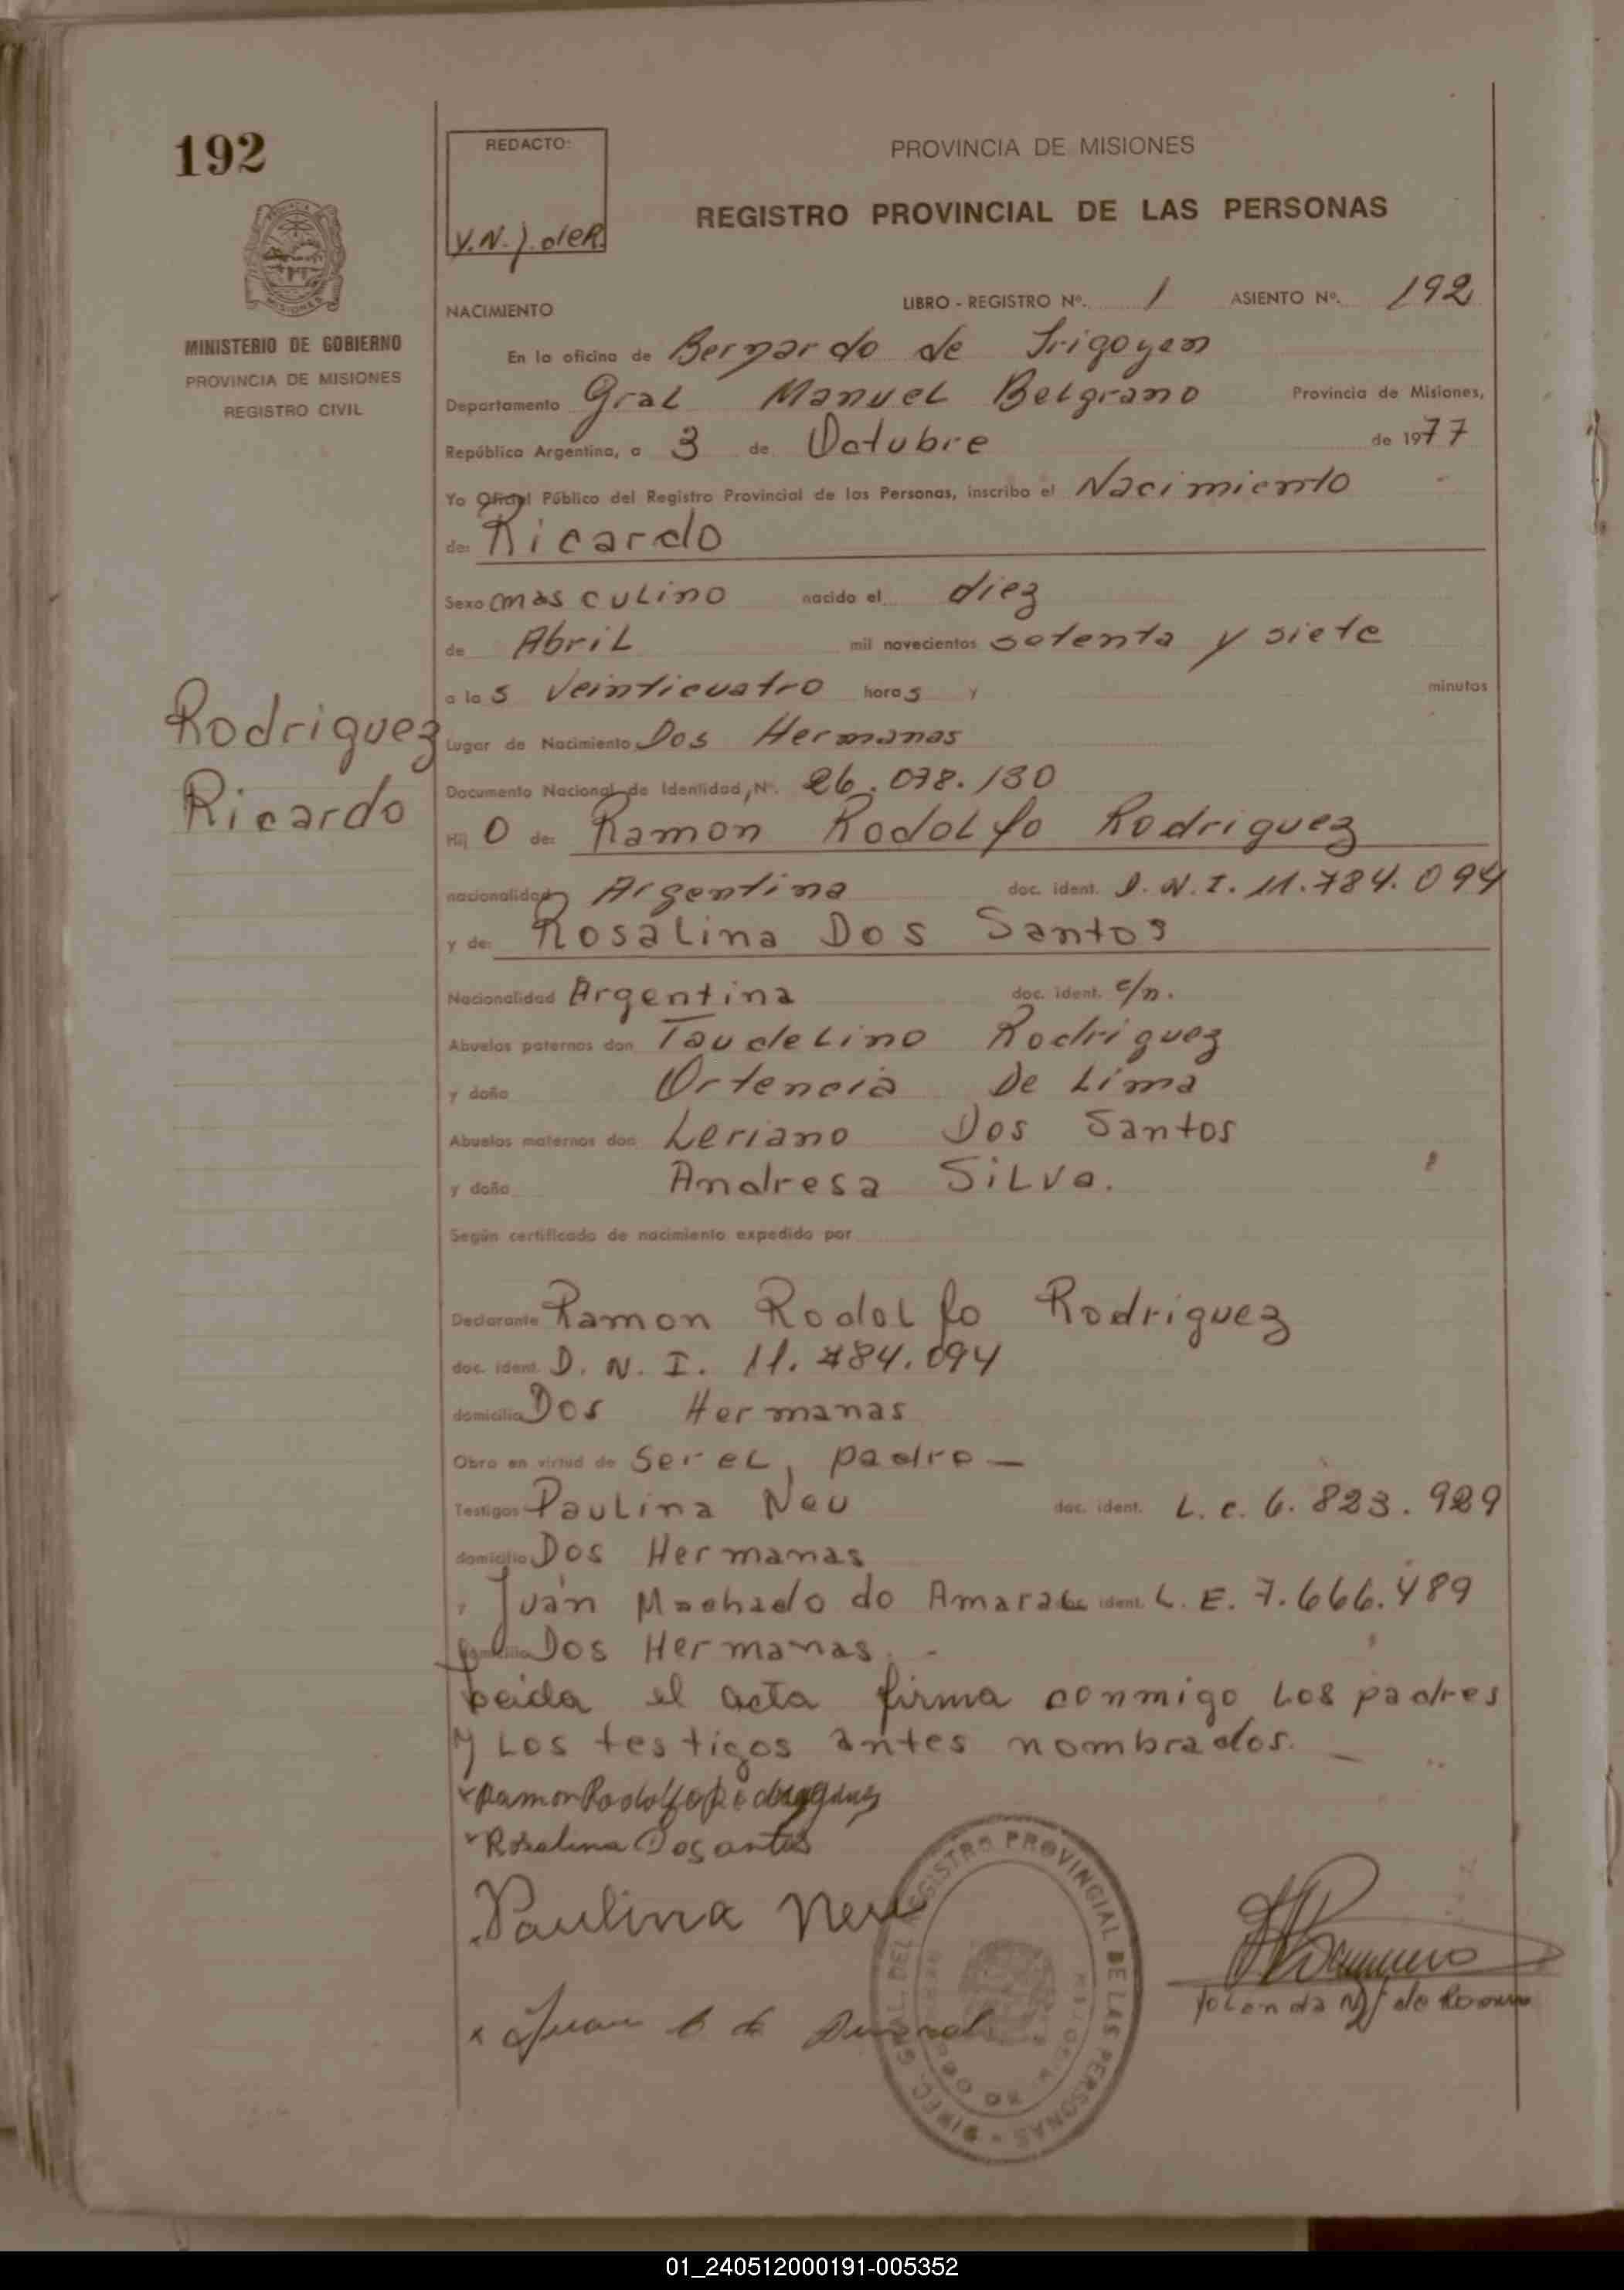 192
REDACTO:
Y.N.J. deR.
PROVINCIA DE MISIONES
REGISTRO PROVINCIAL DE LAS PERSONAS
MINISTERIO DE GOBIERNO
PROVINCIA DE MISIONES
REGISTRO CIVIL
NACIMIENTO LIBRO - REGISTRO Nº. 1 ASIENTO Nº. 192
En la oficina de Bernardo de Irigoyen
Departamento Gral Manuel Belgrano Provincia de Misiones,
República Argentina, a 3 de Octubre de 1977
Yo Oficial Público del Registro Provincial de las Personas, inscribo el Nacimiento
de: Ricardo
Sexo masculino nacido el diez
de Abril mil novecientos setenta y siete
a las veinticuatro horas y minutos
Rodriguez
Ricardo
Lugar de Nacimiento Dos Hermanas
Documento Nacional de Identidad, Nº. 26.078.130
Hijo de: Ramon Rodolfo Rodriguez
nacionalidad Argentina doc. ident. D.N.I. 11.784.094
y de: Rosalina Dos Santos
Nacionalidad Argentina doc. ident. c/n.
Abuelos paternos don Taudelino Rodriguez
y doña Ortencia De Lima
Abuelos maternos don Leriano Dos Santos
y doña Andresa Silva.
Según certificado de nacimiento expedido por
Declarante Ramon Rodolfo Rodriguez
doc. ident. D.N.I. 11.784.094
domicilio Dos Hermanas
Obra en virtud de ser eL, padre —
Testigos Paulina Neu doc. ident. L.c. 6.823.929
domicilio Dos Hermanas
y Juan Machado do Amaral doc. ident. L.E. 7.666.489
domicilio Dos Hermanas.-
Leida el acta firma conmigo Los padres
y Los testigos antes nombrados. —
x Ramon Rodolfo Rodriguez
x Rosalina Dosantos
Paulina Neu
x Juan
DIREC. GRAL. DEL REGISTRO PROVINCIAL DE LAS PERSONAS
Yolanda N J de Romero
01_240512000191-005352